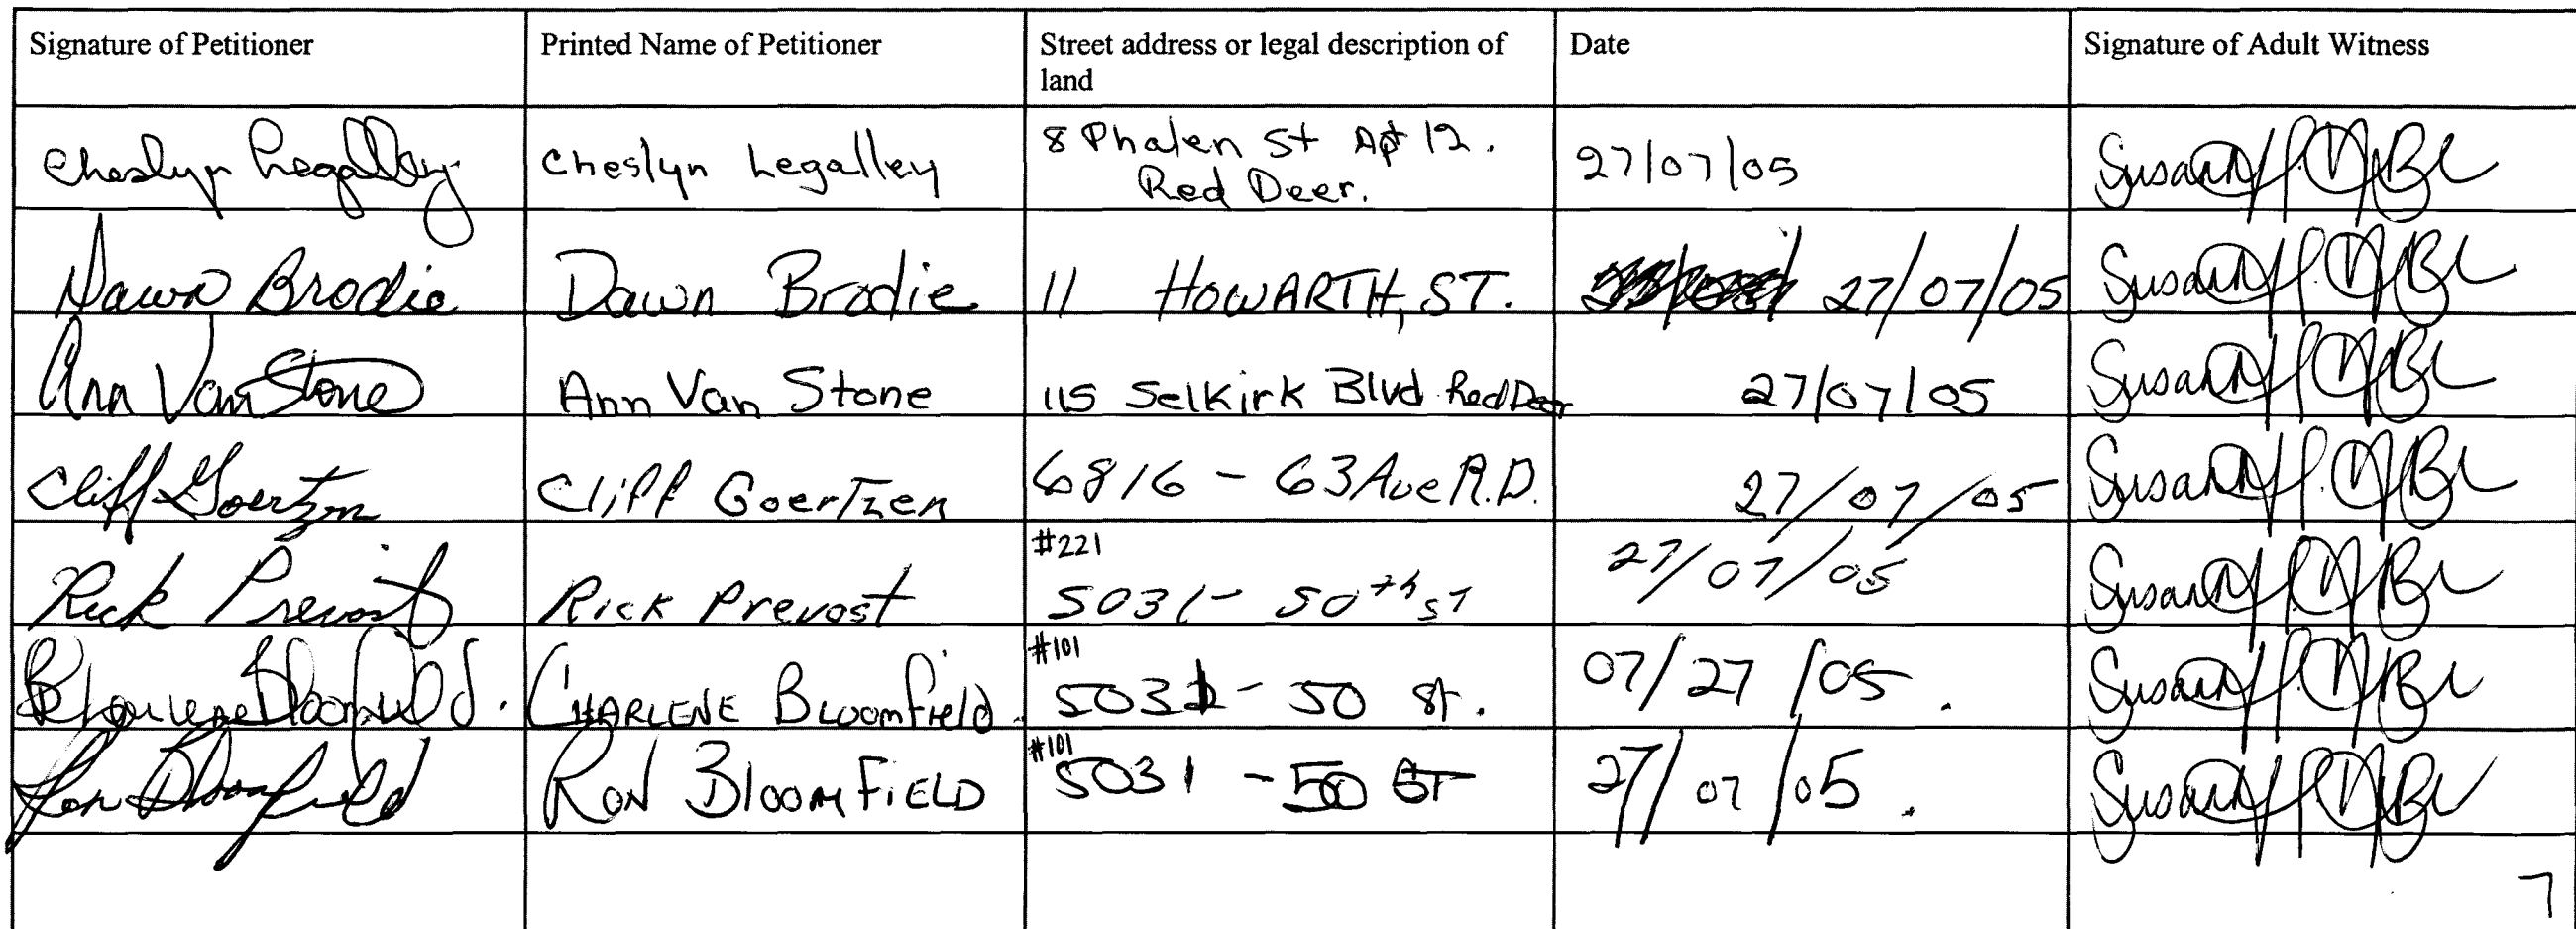 Signature of Petitioner Printed Name of Petitioner Street address or legal description of land Date Signature of Adult Witness
Cheslyn Legalley Cheslyn Legalley 8 Phalen St Apt 12. Red Deer. 27/07/05 Susan
Dawn Brodie Dawn Brodie 11 HOWARTH, ST. 27/07/05 Susan
Ann Van Stone Ann Van Stone 115 Selkirk Blvd Red Deer 27/07/05 Susan
Cliff Goertzen Cliff Goertzen 6816 - 63 Ave R.D. 27/07/05 Susan
Rick Prevost Rick Prevost #221 5031 - 50th ST 27/07/05 Susan
Charlene Bloomfield. CHARLENE Bloomfield. #101 5031 - 50 St. 07/27/05. Susan
Ron Bloomfield RON BLOOMFIELD #101 5031 - 50 ST 27/07/05. Susan
7